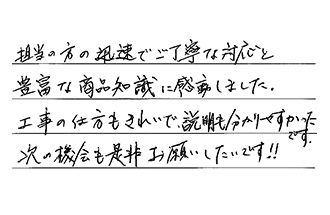 担当の方の迅速でご丁寧な対応と
豊富な商品知識に感動しました。
工事の仕方もきれいで、説明も分かりやすかったです。
次の機会も是非お願いしたいです!!